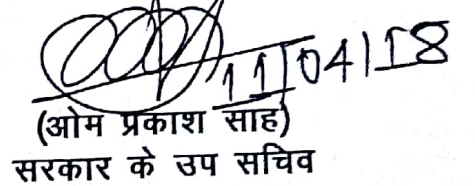 11/04/18
(ओम प्रकाश साह)
सरकार के उप सचिव